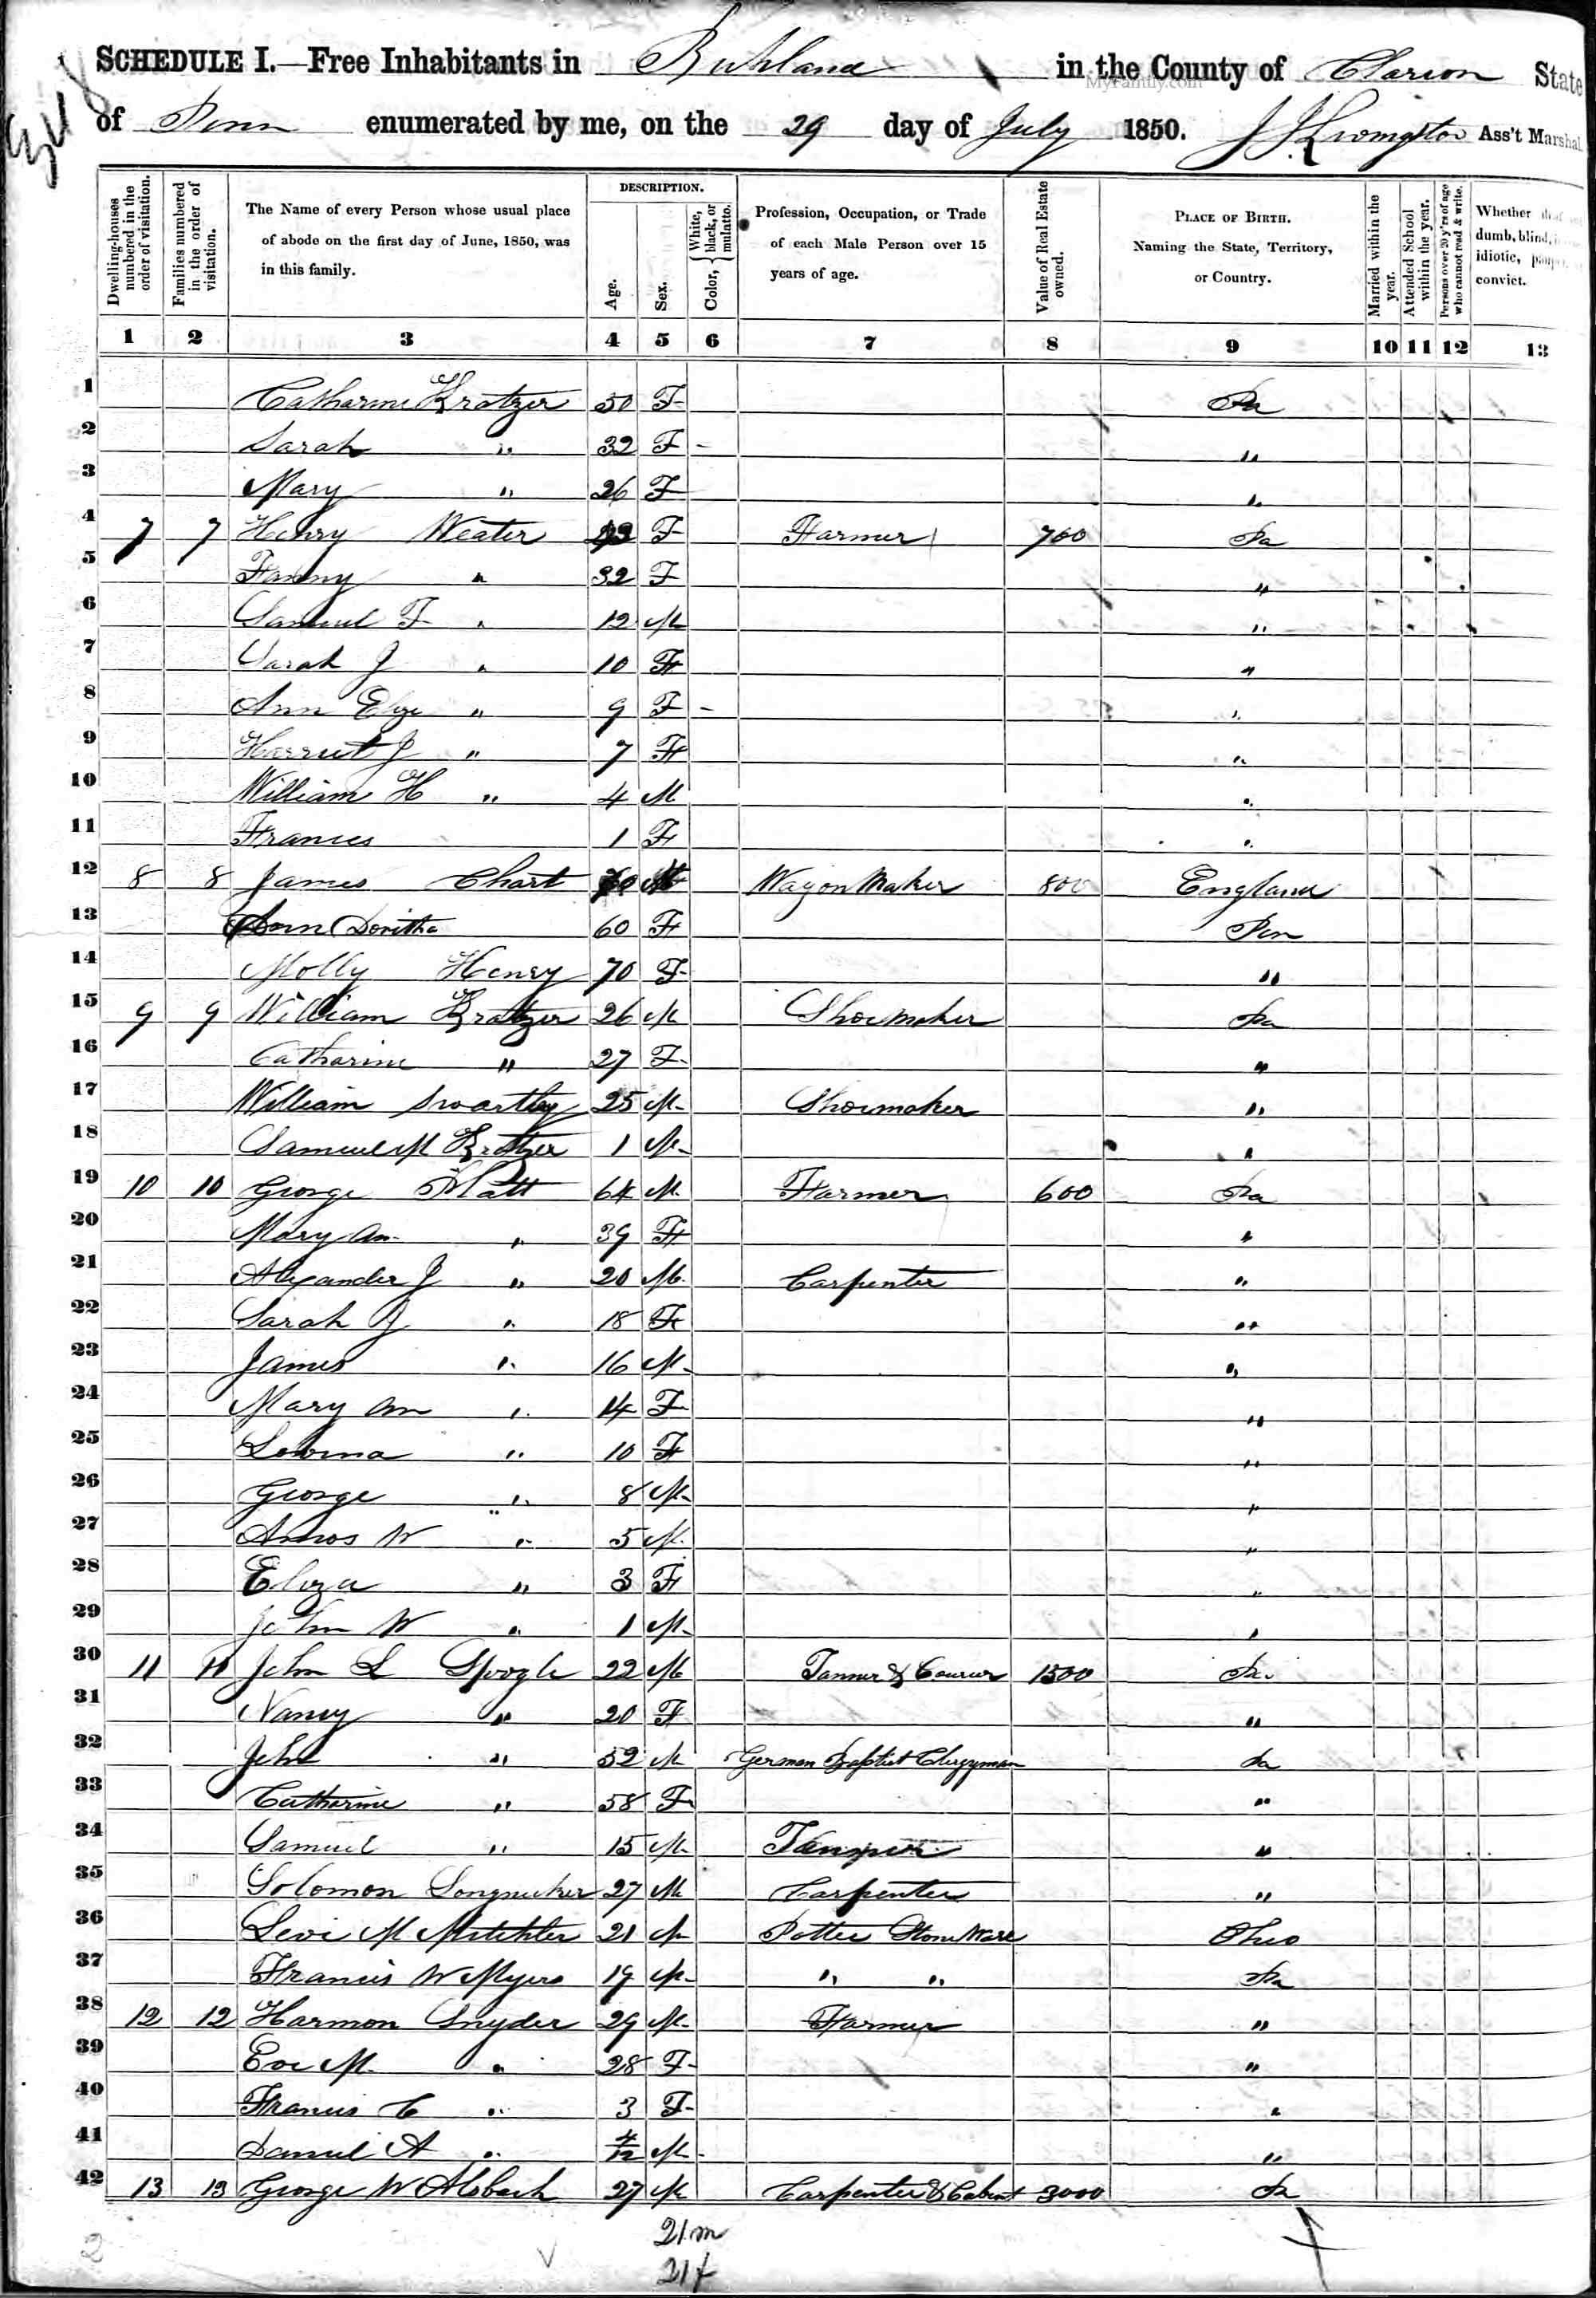 348
SCHEDULE I.—Free Inhabitants in Richland in the County of Clarion State
MyFamily.com
of Penn enumerated by me, on the 29 day of July 1850. J J Livingston Ass't Marshal.
Dwelling-houses numbered in the order of visitation.
Families numbered in the order of visitation.
The Name of every Person whose usual place of abode on the first day of June, 1850, was in this family.
DESCRIPTION.
Age.
Sex.
Color, { White, black, or mulatto.
Profession, Occupation, or Trade of each Male Person over 15 years of age.
Value of Real Estate owned.
PLACE OF BIRTH. Naming the State, Territory, or Country.
Married within the year.
Attended School within the year.
Persons over 20 y'rs of age who cannot read & write.
Whether deaf dumb, blind, idiotic, pauper convict.
1 2 3 4 5 6 7 8 9 10 11 12 13
1 Catharine Kratzer 50 F Pa
2 Sarah " 32 F - "
3 Mary " 26 F "
4 7 7 Henry Weater F Farmer 700 Pa
5 Fanny " 32 F "
6 Samuel F " 12 M "
7 Sarah J " 10 F "
8 Ann Eliz " 9 F - "
9 Harriet J " 7 F "
10 William H " 4 M "
11 Frances 1 F "
12 8 8 James Chart M Wagon Maker 800 England
13 Ann Doritha 60 F Pen
14 Molly Henry 70 F "
15 9 9 William Kratzer 26 M Shoemaker Pa
16 Catharine " 27 F "
17 William Swartley 25 M Shoemaker "
18 Samuel M Kratzer 1 M "
19 10 10 George Platt 64 M Farmer 600 Pa
20 Mary An " 39 F "
21 Alexander J " 20 M Carpenter "
22 Sarah J " 18 F "
23 James " 16 M "
24 Mary Ann " 14 F "
25 Lovina " 10 F "
26 George " 8 M "
27 Amos W " 5 M "
28 Eliza " 3 F "
29 John W " 1 M "
30 11 11 John L Spogle 22 M Tanner & Courier 1500 Pa
31 Nancy " 20 F "
32 John " 52 M German Baptist Clergyman Pa
33 Catharine " 58 F "
34 Samuel " 15 M Tanner "
35 Solomon Longnecker 27 M Carpenter "
36 Levi M 21 M Potter Stone Ware Ohio
37 Francis W Myers 19 M " " Pa
38 12 12 Harmon Snyder 29 M Farmer "
39 Eve M " 28 F "
40 Francis C " 3 F "
41 Daniel A " 4/12 M "
42 13 13 George W Alsbach 27 M Carpenter & Cabint 3000 Pa
21 m
21 f
2